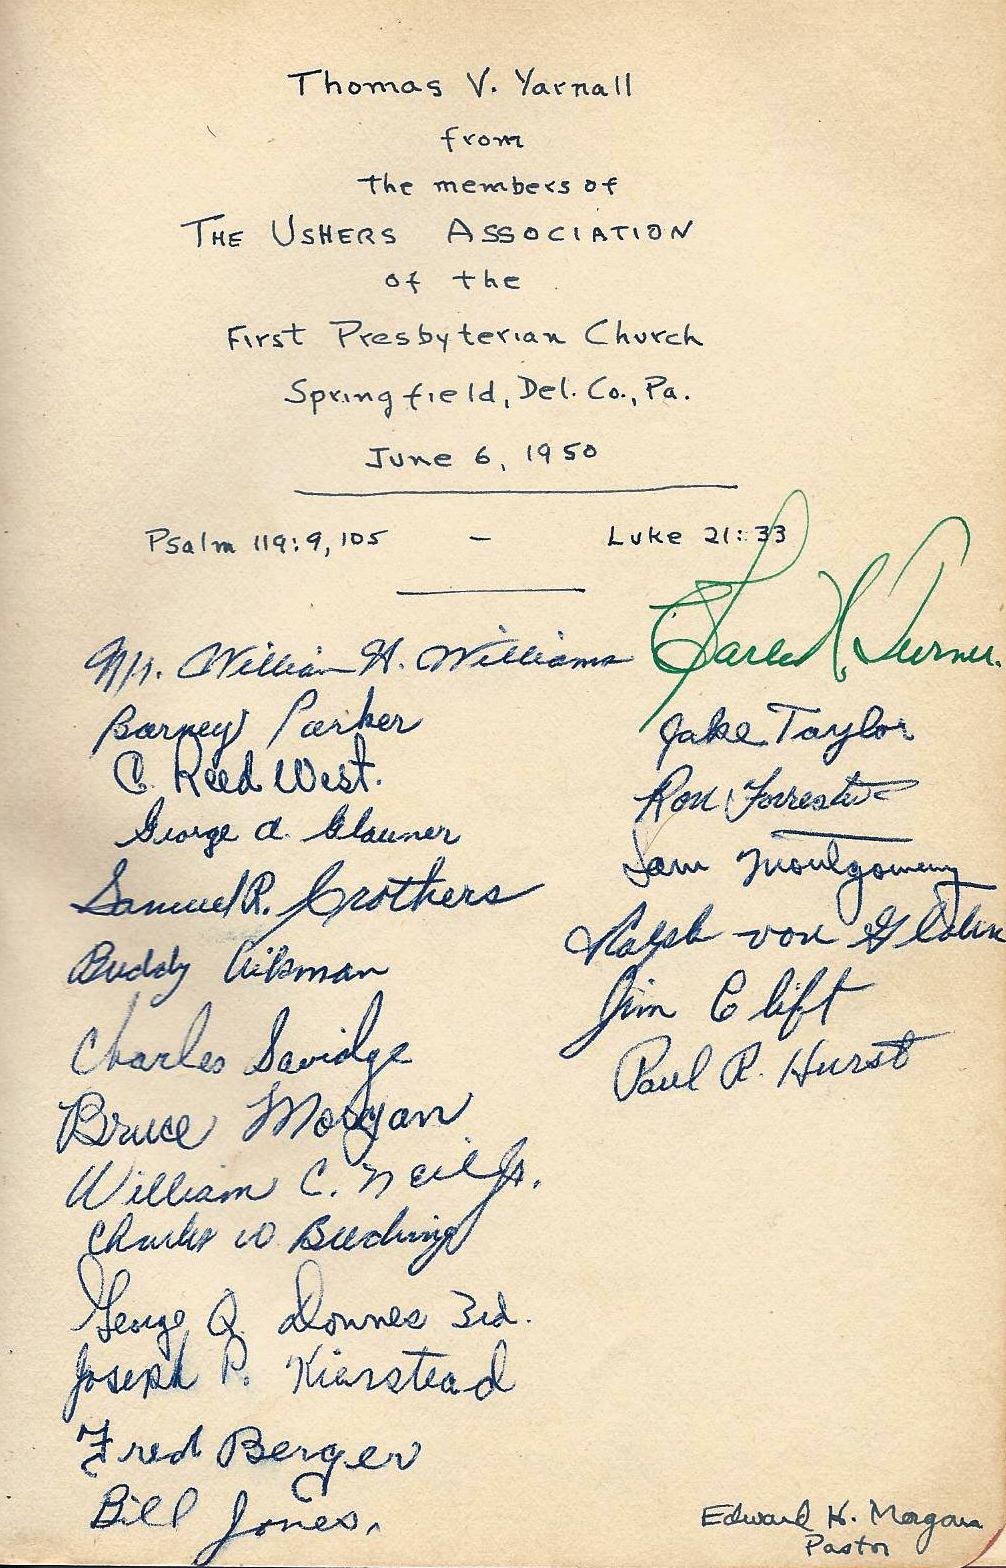 Thomas V. Yarnall
from
the members of
THE USHERS ASSOCIATION
of the
First Presbyterian Church
Springfield, Del. Co., Pa.
June 6, 1950
Psalm 119:9, 105 - Luke 21:33
Mr. William H. Williams
Barney Parker
C. Reed West.
George A. Glauner
Samuel R. Crothers
Buddy Aikman
Charles Savidge
Bruce Morgan
William C. Neil Jr.
Charles W
George Q. Downes 3rd.
Joseph P. Kierstead
Fred Berger
Bill Jones.
H. Turner.
Jake Taylor
Ron Forrester
Sam Montgomery
Ralph von Glahn
Jim Clift
Paul R. Hurst
Edward K. Morgan
Pastor